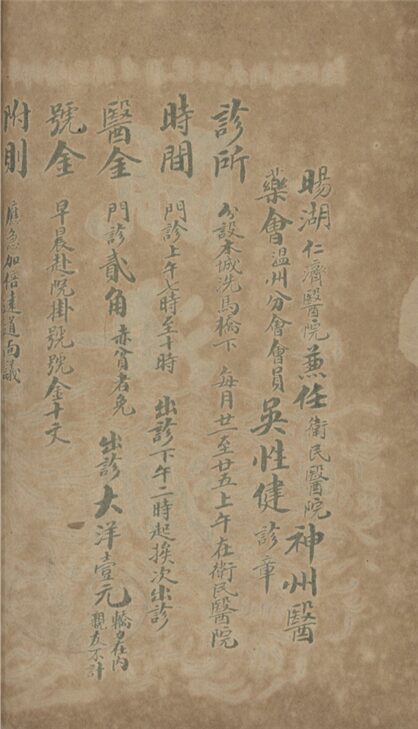 暘湖仁濟醫院兼任衛民醫院神州醫
藥會溫州分會會員吳性健診章
診所 分設本城洗馬橋下 每月廿一至廿五上午在衛民醫院
時間 門診上午七時至十時 出診下午二時起挨次出診
醫金 門診貳角赤貧者免 出診大洋壹元 轎力在內 親友不計
號金 早晨赴院掛號號金十文
附則 應急加倍遠道面議